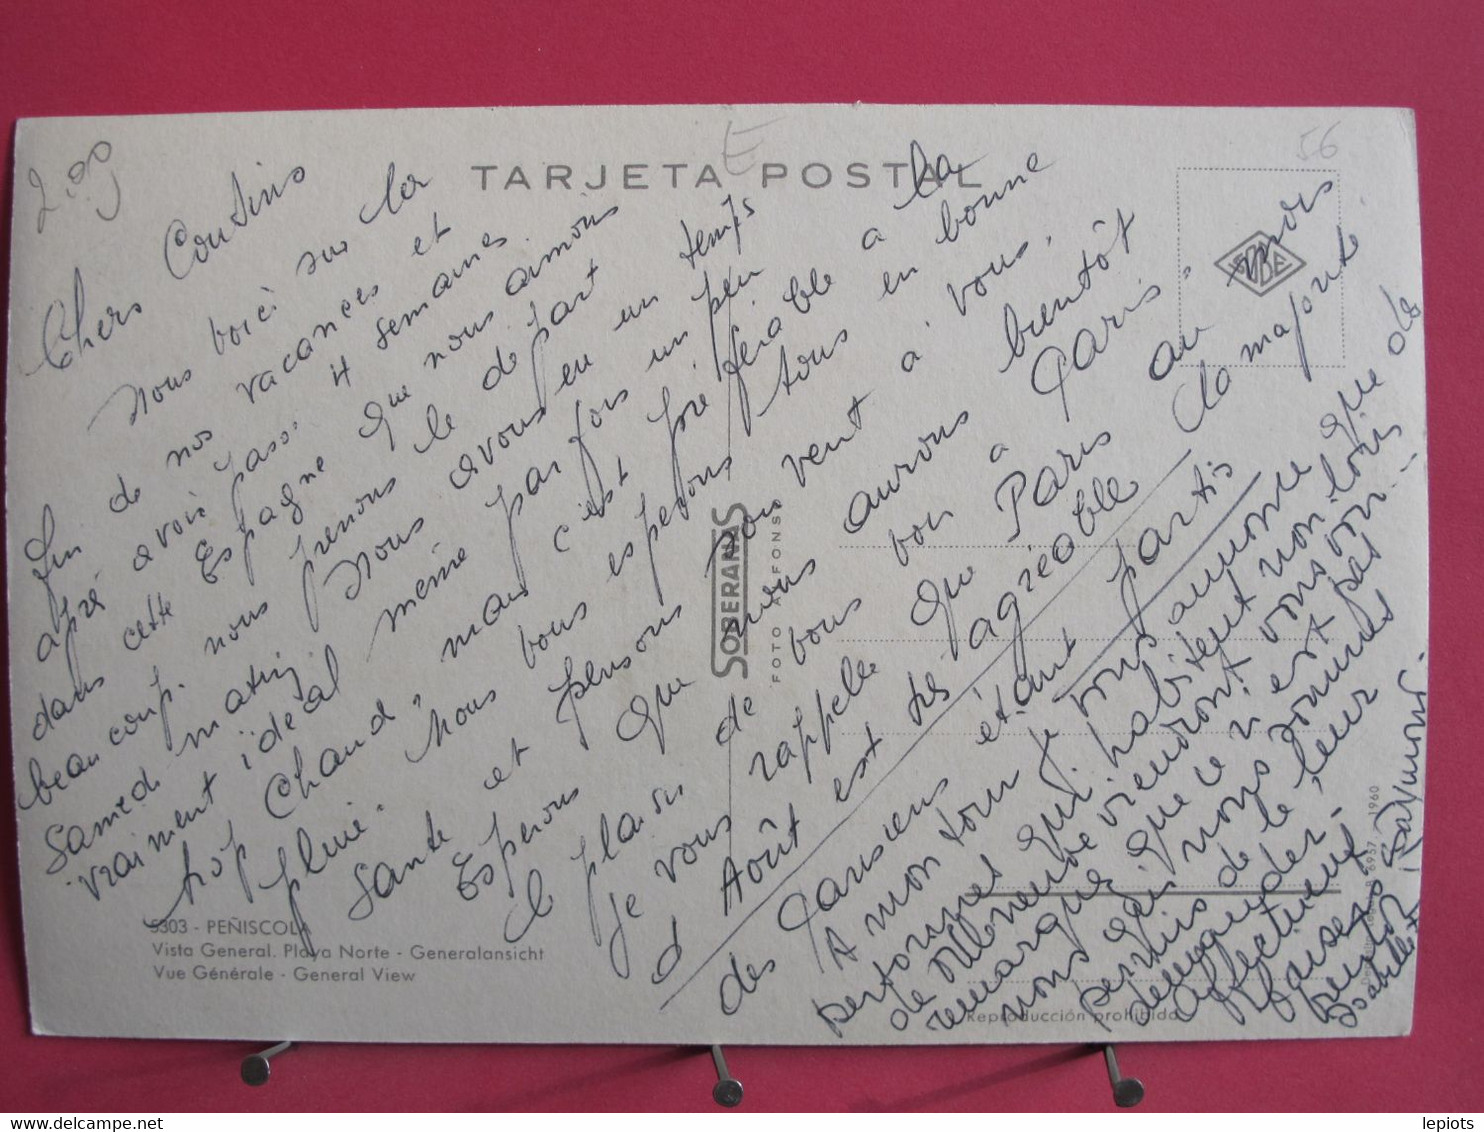 2.00
E
56
TARJETA POSTAL
Chers Cousins
Nous voici sur la
fin de nos vacances et
apré avoir passé 4 semaines
dans cette Espagne que nous aimons
beaucoup. nous prenons le départ
Samedi matin. Nous avons eu un temps
vraiment idéal même parfois un peu
trop chaud, mais c'est préférable a la
pluie. Nous vous espérons tous en bonne
santé et pensons souvent a vous.
Espérons que nous aurons bientôt
le plaisir de vous voir a Paris.
je vous rappelle que Paris au mois
d'Août est très agréable la majorité
des Parisiens étant partis
A mon tour je vous annonce que
personnes qui habitent non loin
de viendront vous
remarqué que ce n'est pas
nous qui nous sommes
permis de le leur
demander.
Affectueux
Baisers Raymond
Isabelle
SOBERANAS
FOTO ALFONSO
5303 - PEÑISCOLA
Vista General. Playa Norte - Generalansicht
Vue Générale - General View
Reproducción prohibida
B 6957 - 1960
delcampe.net
lepiots